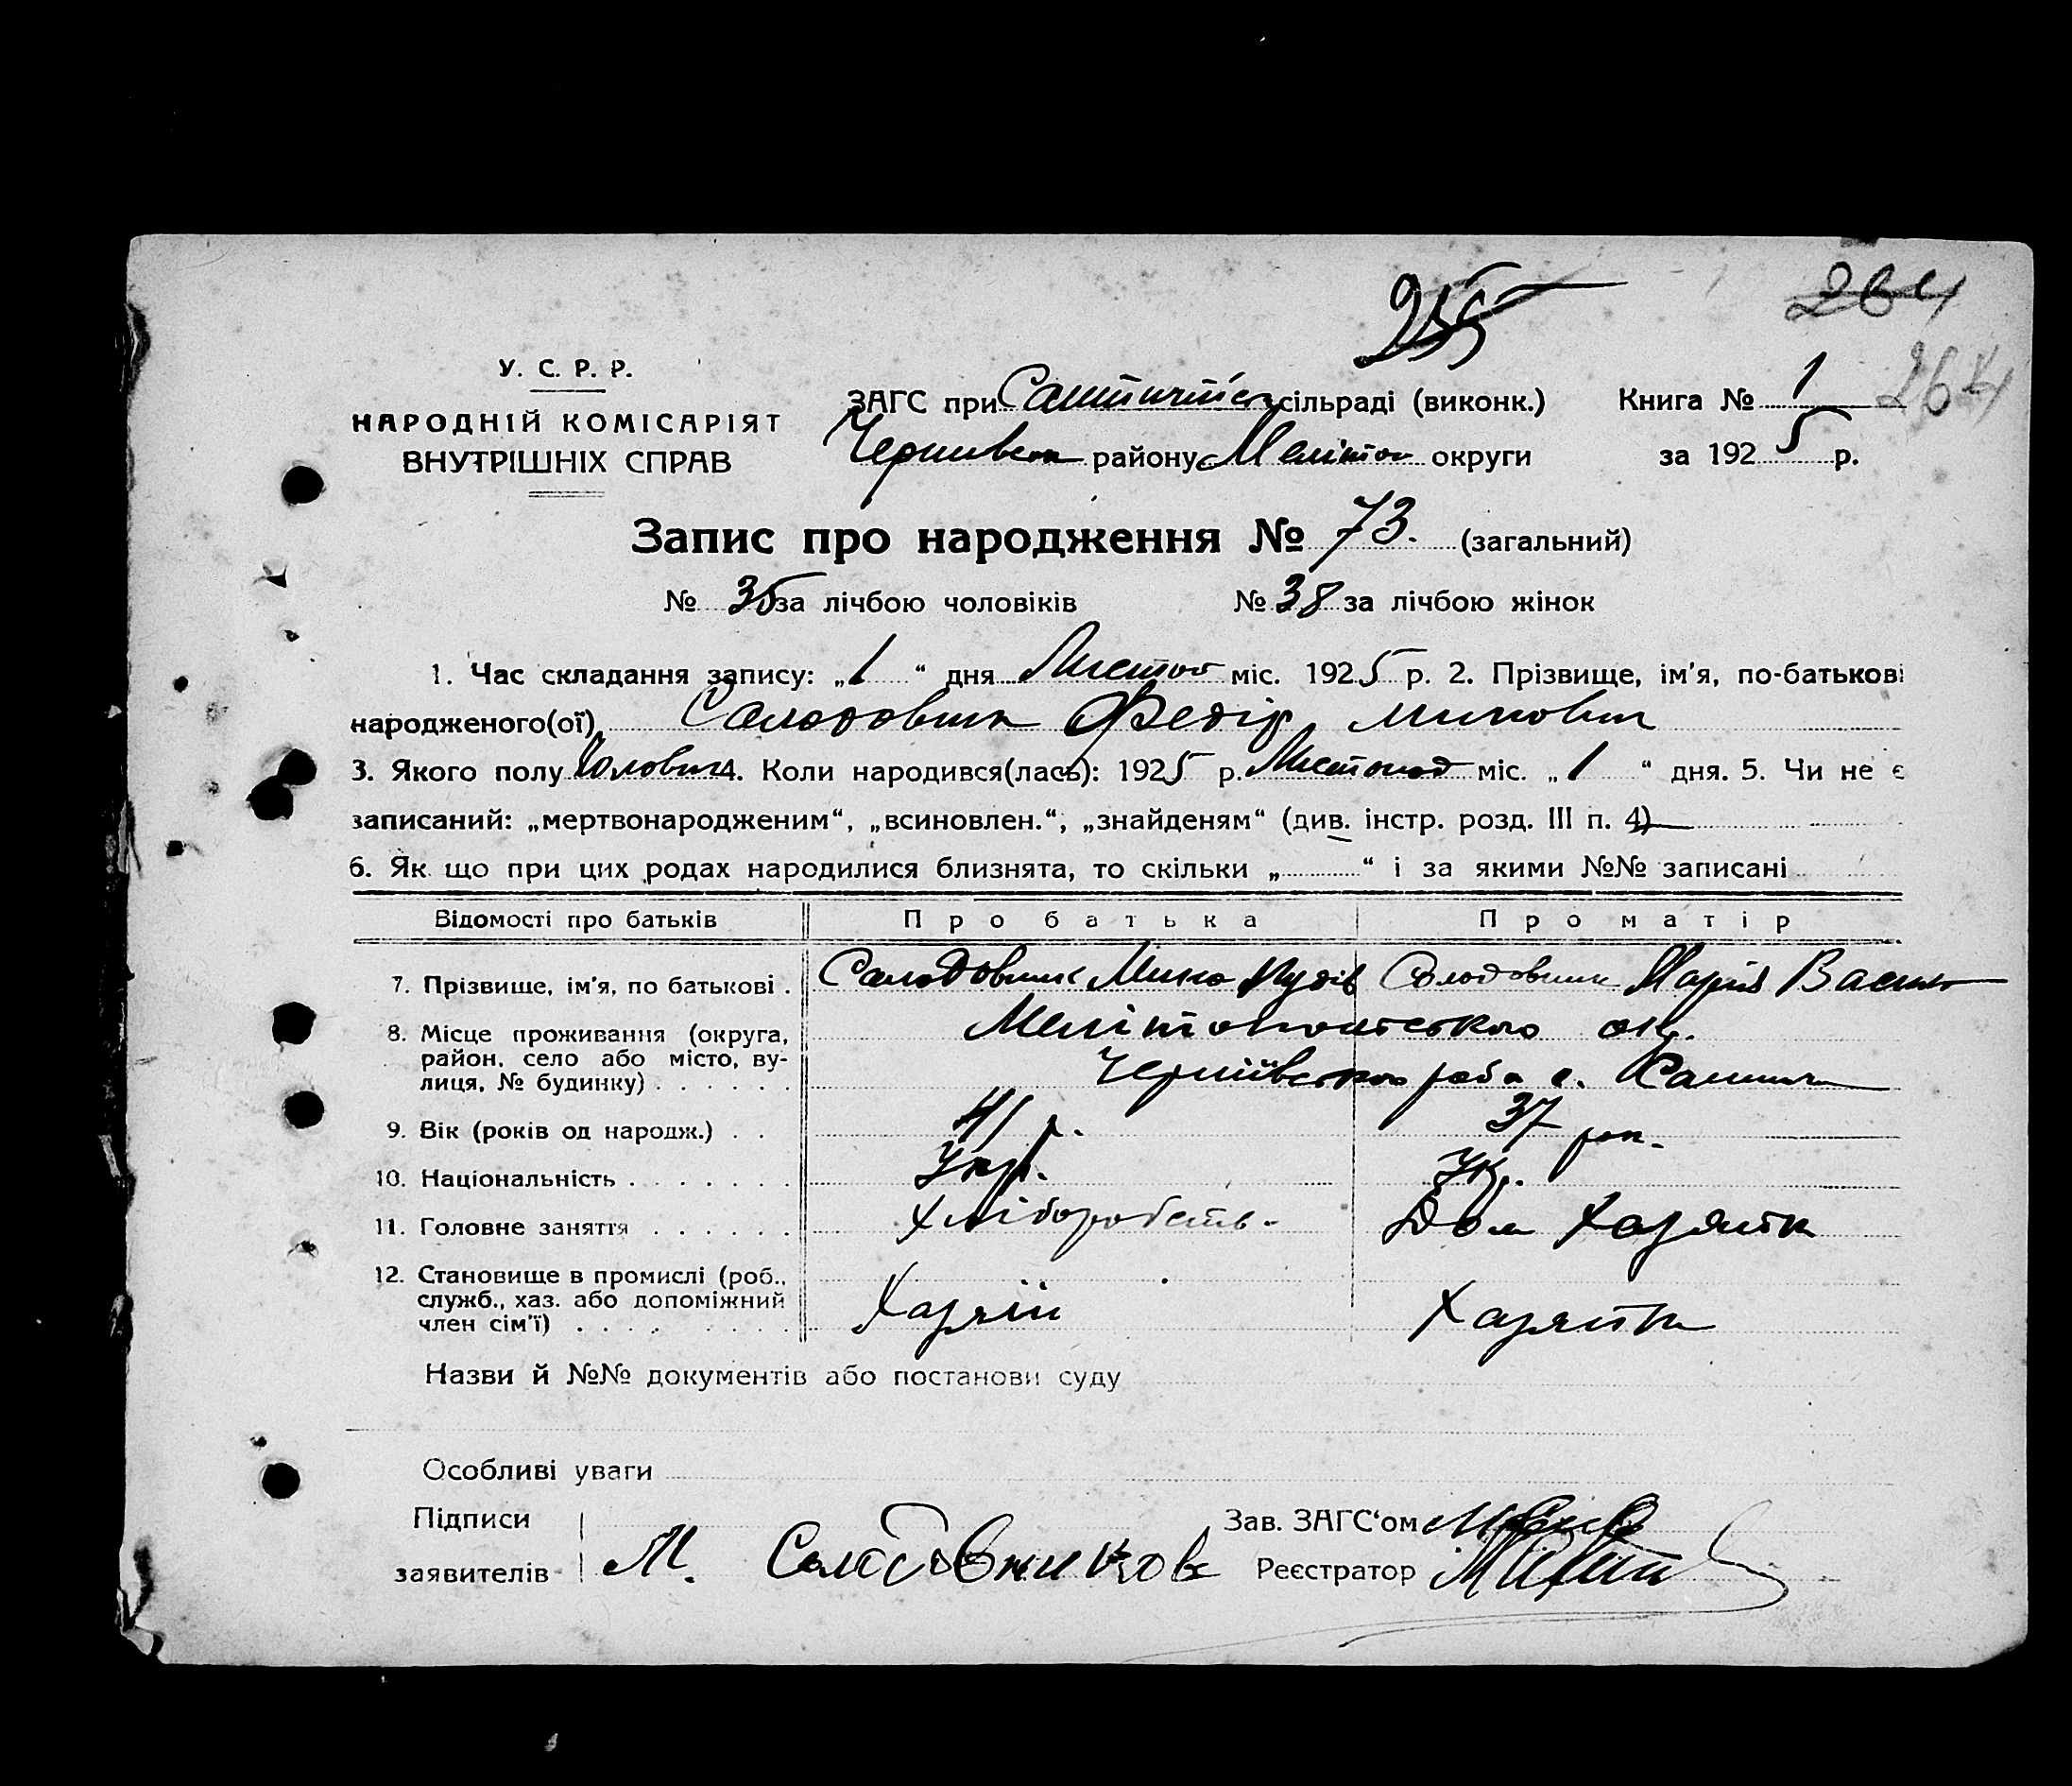 255
264
264
У. С. Р. Р.
НАРОДНІЙ КОМІСАРІЯТ
ВНУТРІШНІХ СПРАВ
ЗАГС при сільраді (виконк.) Книга № 1
району Меліто округи за 1925 р.
Запис про народження № 73. (загальний)
№ 35 за лічбою чоловіків № 38 за лічбою жінок
1. Час складання запису: „1“ дня Листоп міс. 1925 р. 2. Прізвище, ім'я, по-батькові
народженого(ої) Солодовник Федір
3. Якого полу Чоловіч 4. Коли народився(лась): 1925 р. Листопад міс. „1“ дня. 5. Чи не є
записаний: „мертвонародженим“, „всиновлен.“, „знайденям“ (див. інстр. розд. III п. 4)
6. Як що при цих родах народилися близнята, то скільки „ “ і за якими №№ записані
Відомості про батьків Про батька Про матір
7. Прізвище, ім'я, по батькові . Солодовник Мико Солодовник Марія Васил
8. Місце проживання (округа, Мелітопольського окр.
район, село або місто, ву-
лиця, № будинку) . . . . . . Чернівського с.
9. Вік (років од народж.) . . 41 р. 37 рок.
10. Національність . . . . . . . Укр. Ук.
11. Головне заняття . . . . . . Хліборобств. Дом Хазяйк
12. Становище в промислі (роб.,
служб., хаз. або допоміжний Хазяїн Хазяйк
член сім'ї) . . . . . . . .
Назви й №№ документів або постанови суду
Особливі уваги
Підписи Зав. ЗАГС‘ом
заявителів М. Солодовников Реєстратор